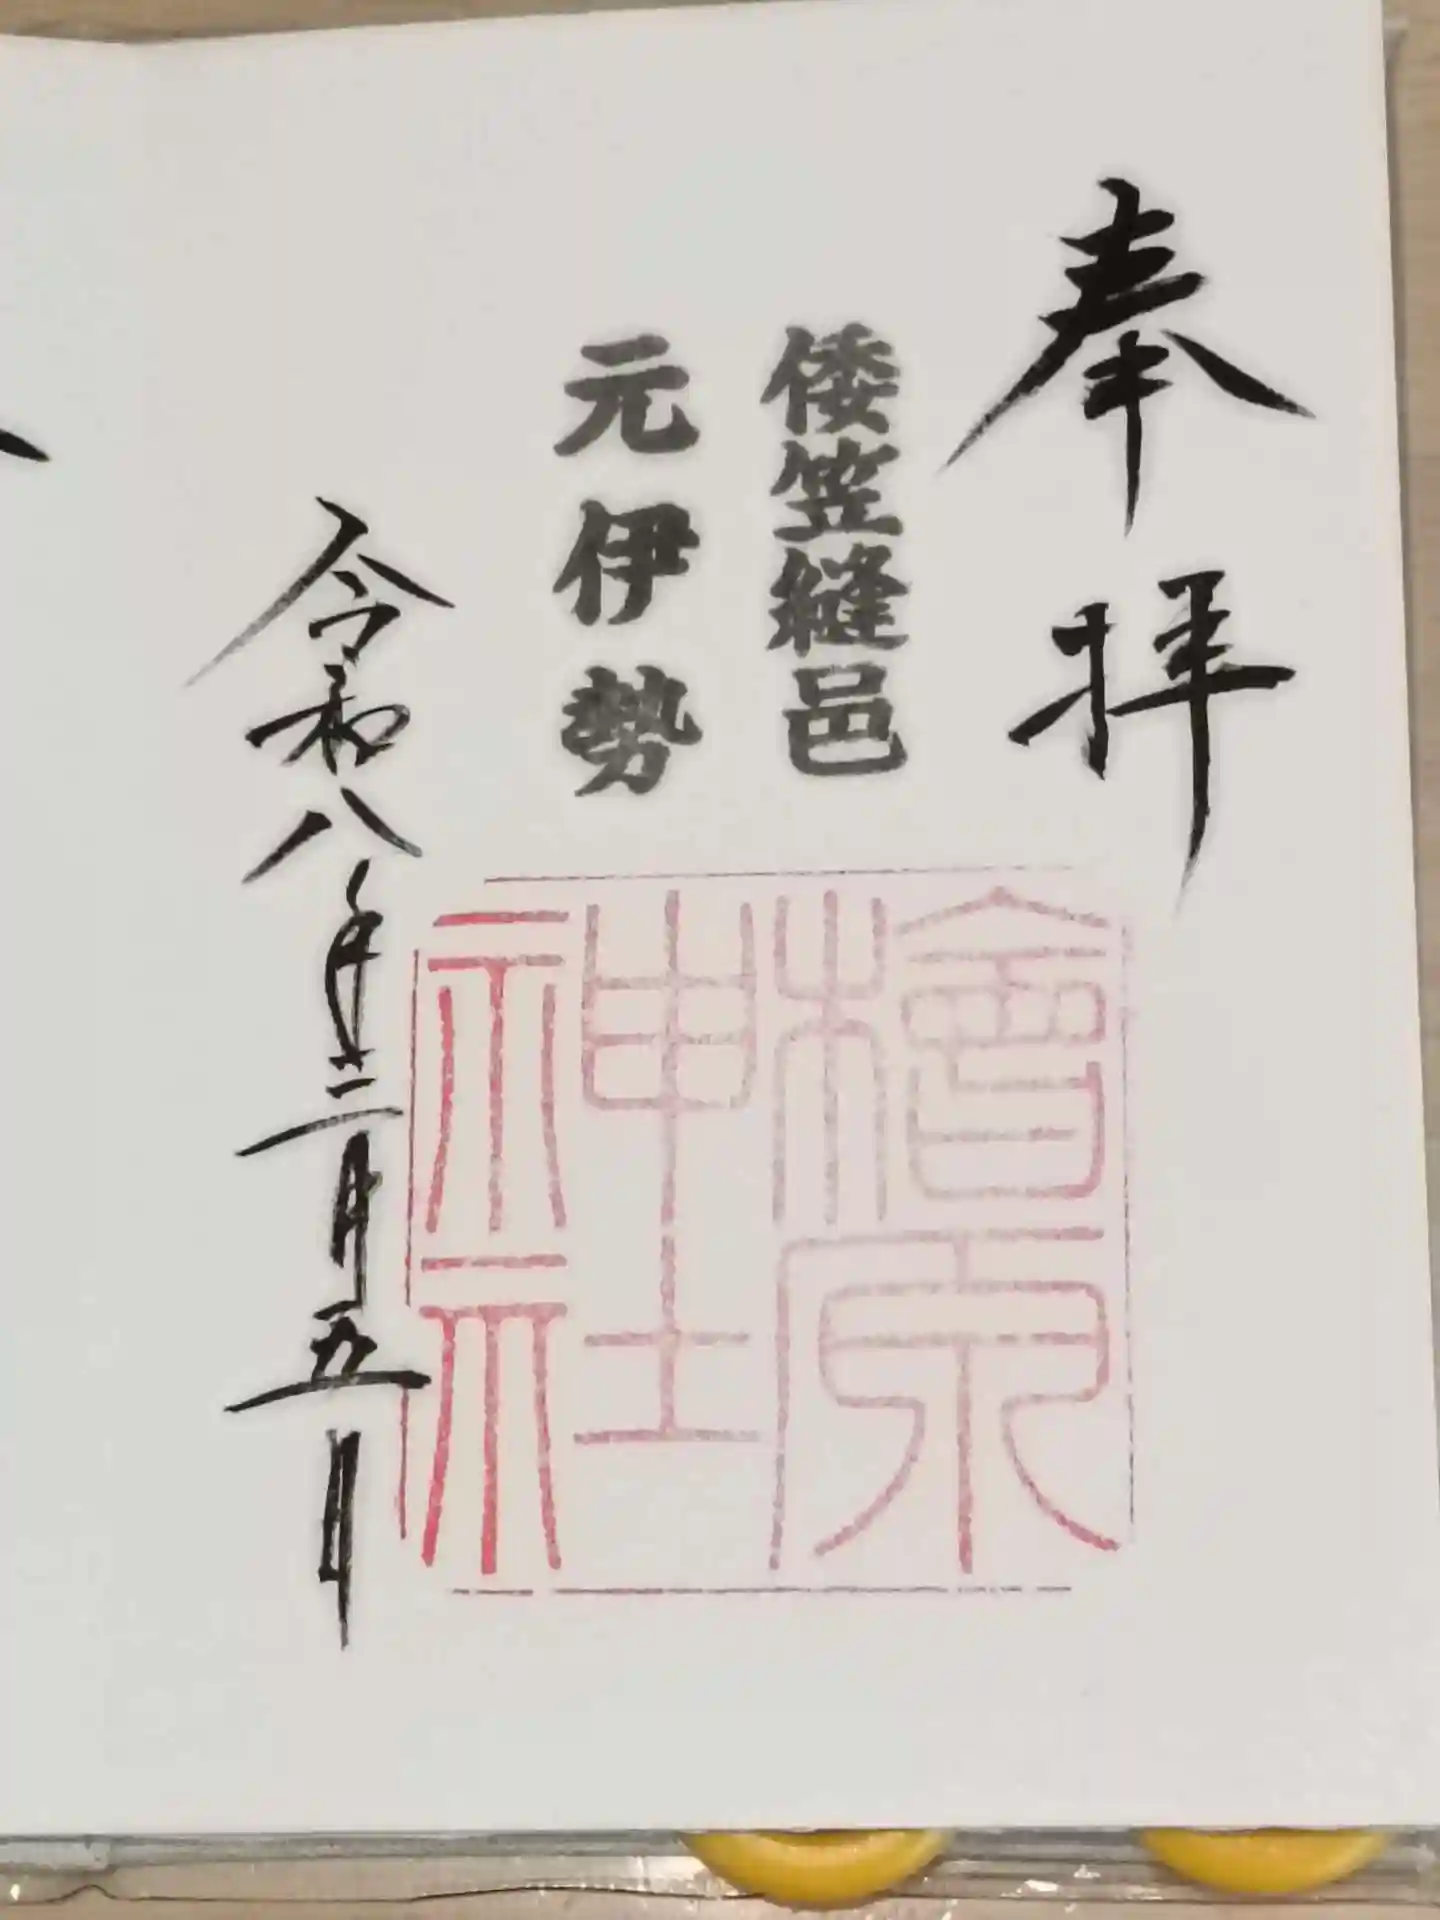 奉拝
倭笠縫邑
元伊勢
檜原神社
令和八年三月五日